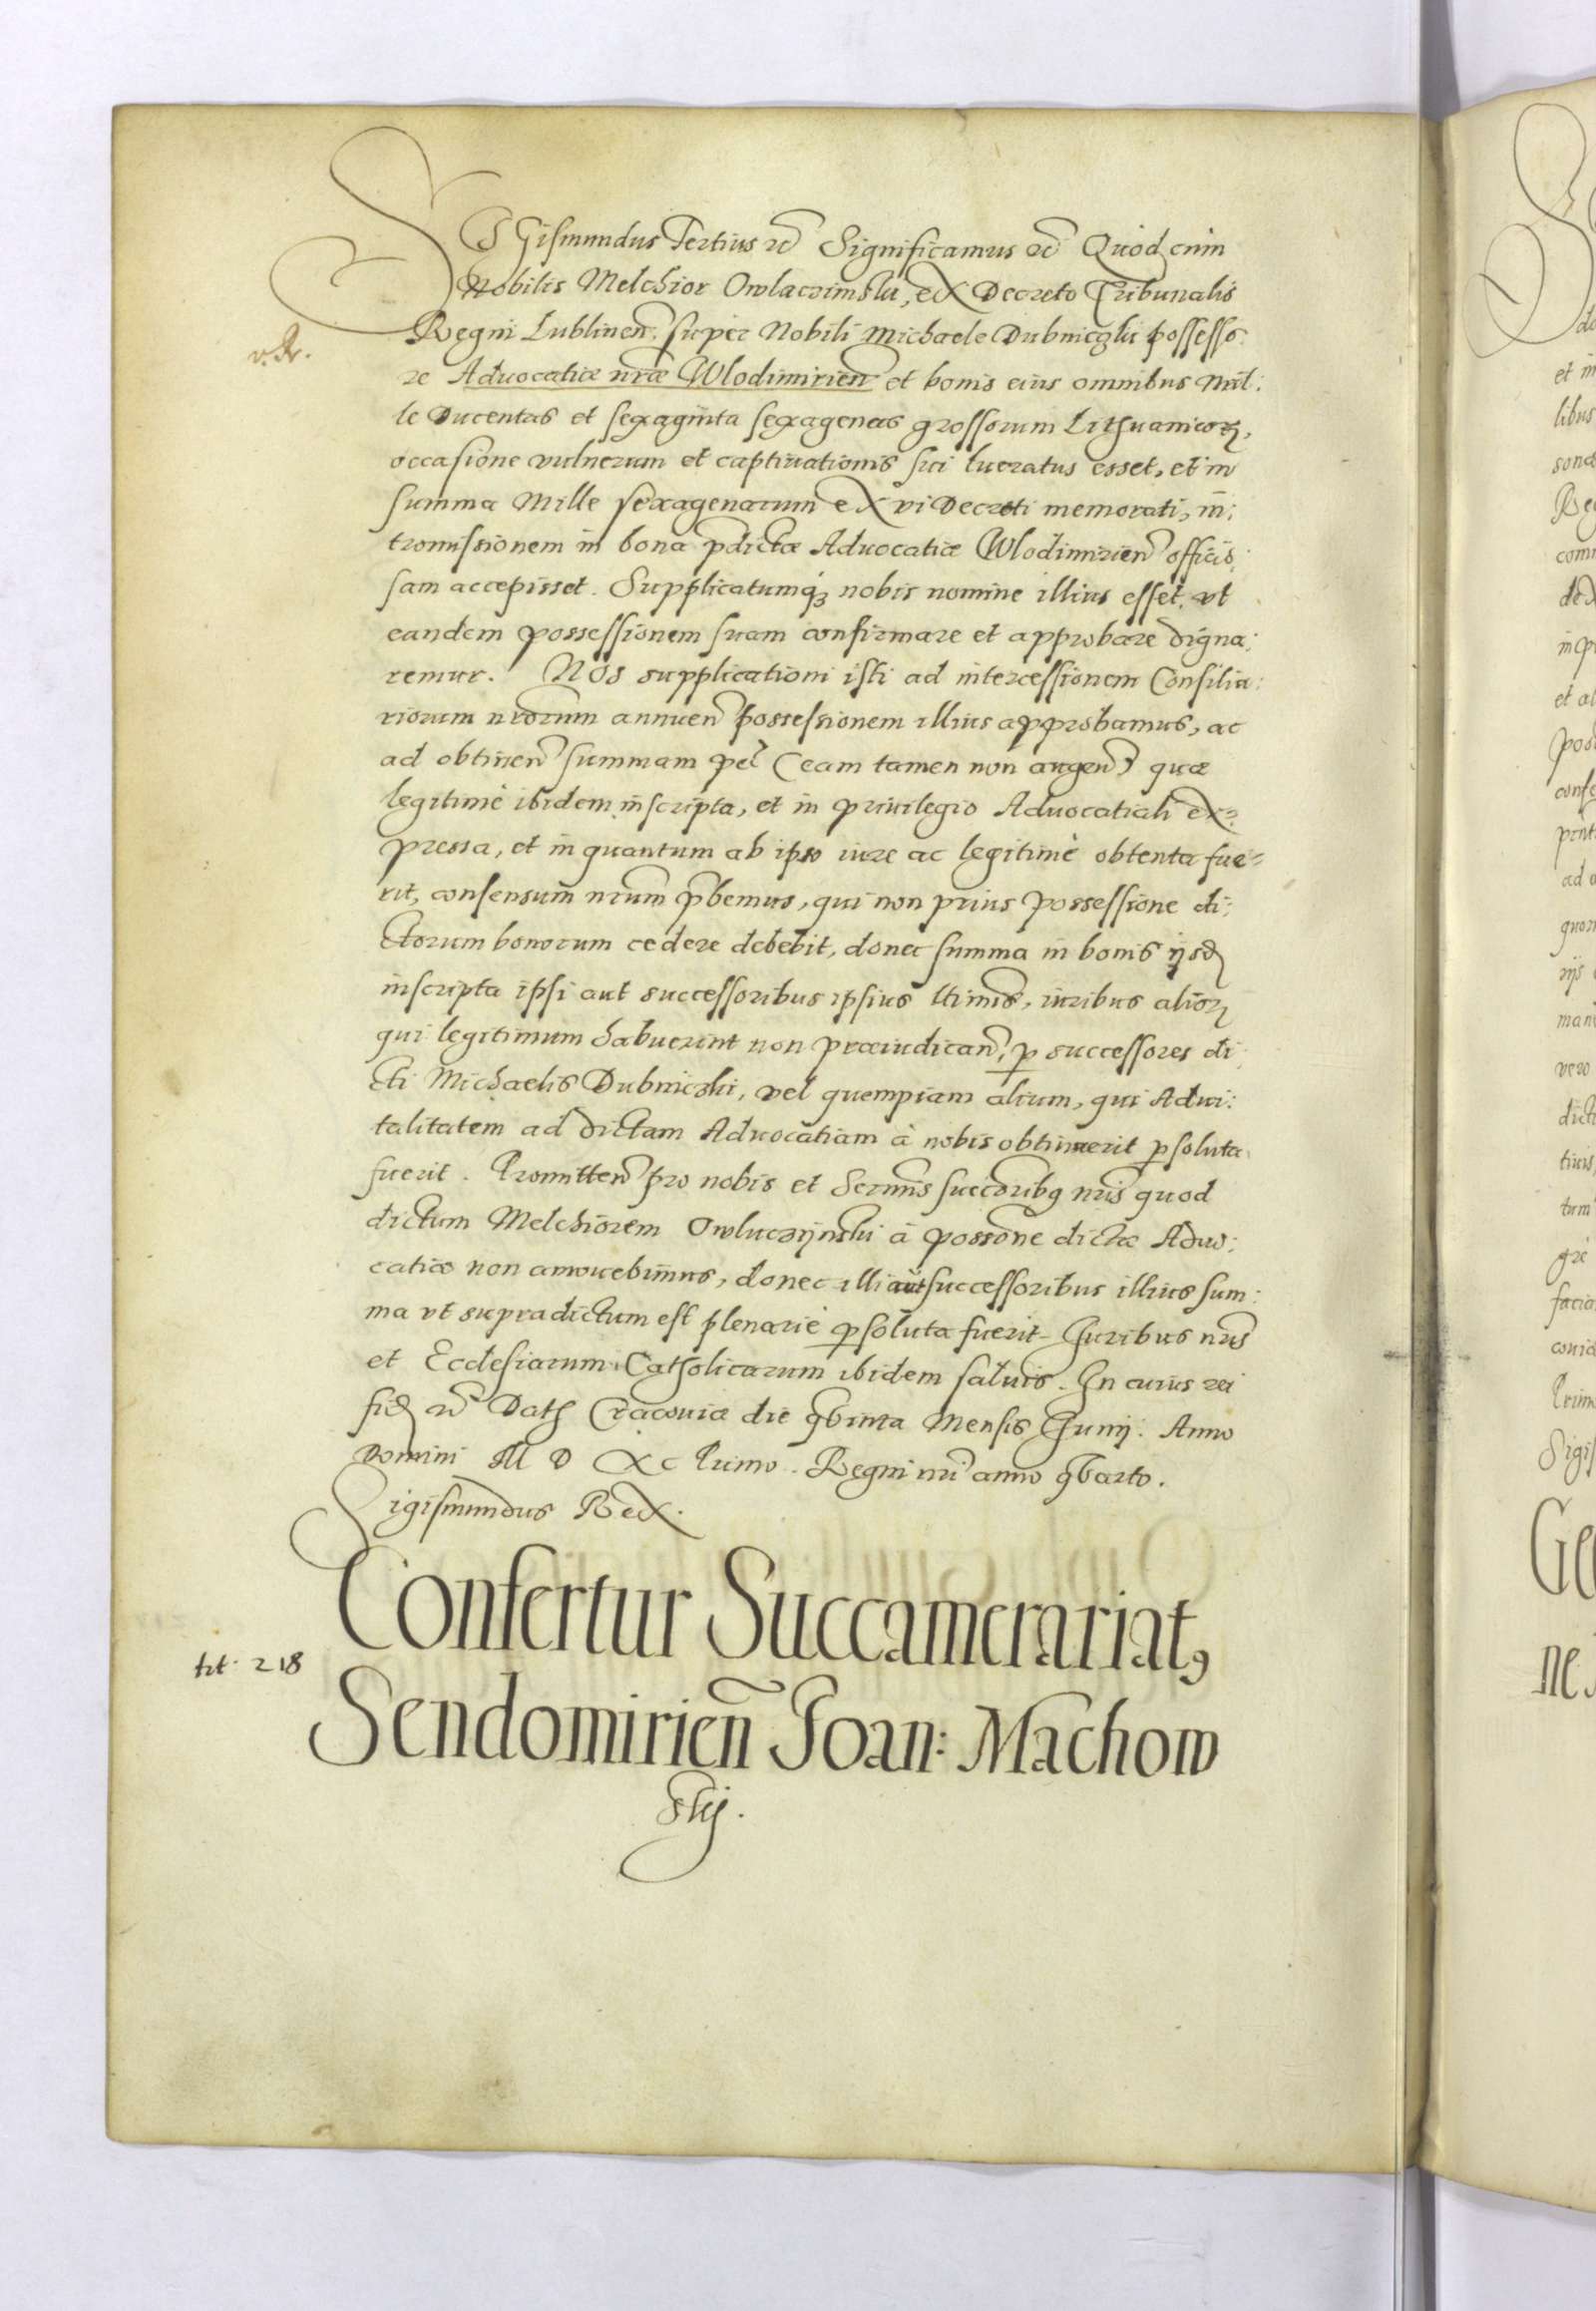 SIGismundus Tertius etc Significamus etc Quod cum
Nobilis Melchior Owlaczimski, ex Decreto Tribunalis
Regni Lublinen. super Nobili Michaele Dubniczki possesso:
v. A.
re Aduocatiæ nræ Wlodimirien et bonis eius omnibus Mil:
le Ducentas et sexaginta sexagenas grossorum Lithuanicorꝝ,
occasione vulnerum et captiuationis sui lucratus esset, et in
summa Mille sexagenarum ex vi Decreti memorati, in:
tromissionem in bona pdictæ Aduocatiæ Wlodimirien officio:
sam accepisset. Supplicatumqꝫ nobis nomine illius esset, vt
eandem possessionem suam confirmare et approbare digna:
remur. Nos supplicationi isti ad intercessionem Consilia:
riorum nrorum annuen possessionem illius approbamus, ac
ad obtinen summam pel (eam tamen non augen) quæ
legitimè ibidem inscripta, et in priuilegio Aduocatiali ex=
pressa, et in quantum ab ipso iure ac legitimè obtenta fue=
rit, consensum nrum pbemus, qui non prius possessione di:
ctorum bonorum cedere debebit, donec summa in bonis ijsd
inscripta ipsi aut successoribus ipsius ltimis, iuribus aliorꝝ
qui legitimum habuerint non præiudican, p successores di:
cti Michaelis Dubniczki, vel quempiam alium, qui Adui:
talitatem ad dictam Aduocatiam à nobis obtinuerit psoluta
fuerit. Promitten pro nobis et Sermis succoribq nris quod
dictum Melchiorem Owluczijnski à possone dictæ Aduo:
catiæ non amouebimus, donec illi aut successoribus illius sum:
ma vt supradictum est plenariè psoluta fuerit. Iuribus nris
et Ecclesiarum Catholicarum ibidem saluis. In cuius rei
fid etc Datꝭ Cracouiæ die qbinta Mensis Junij. Anno
Domini M D XC Primo. Regni nri anno qbarto.
Sigismundus Rex.
Confertur Succamerariat,
tit. 218
Sendomirien Joan: Machow
skij.